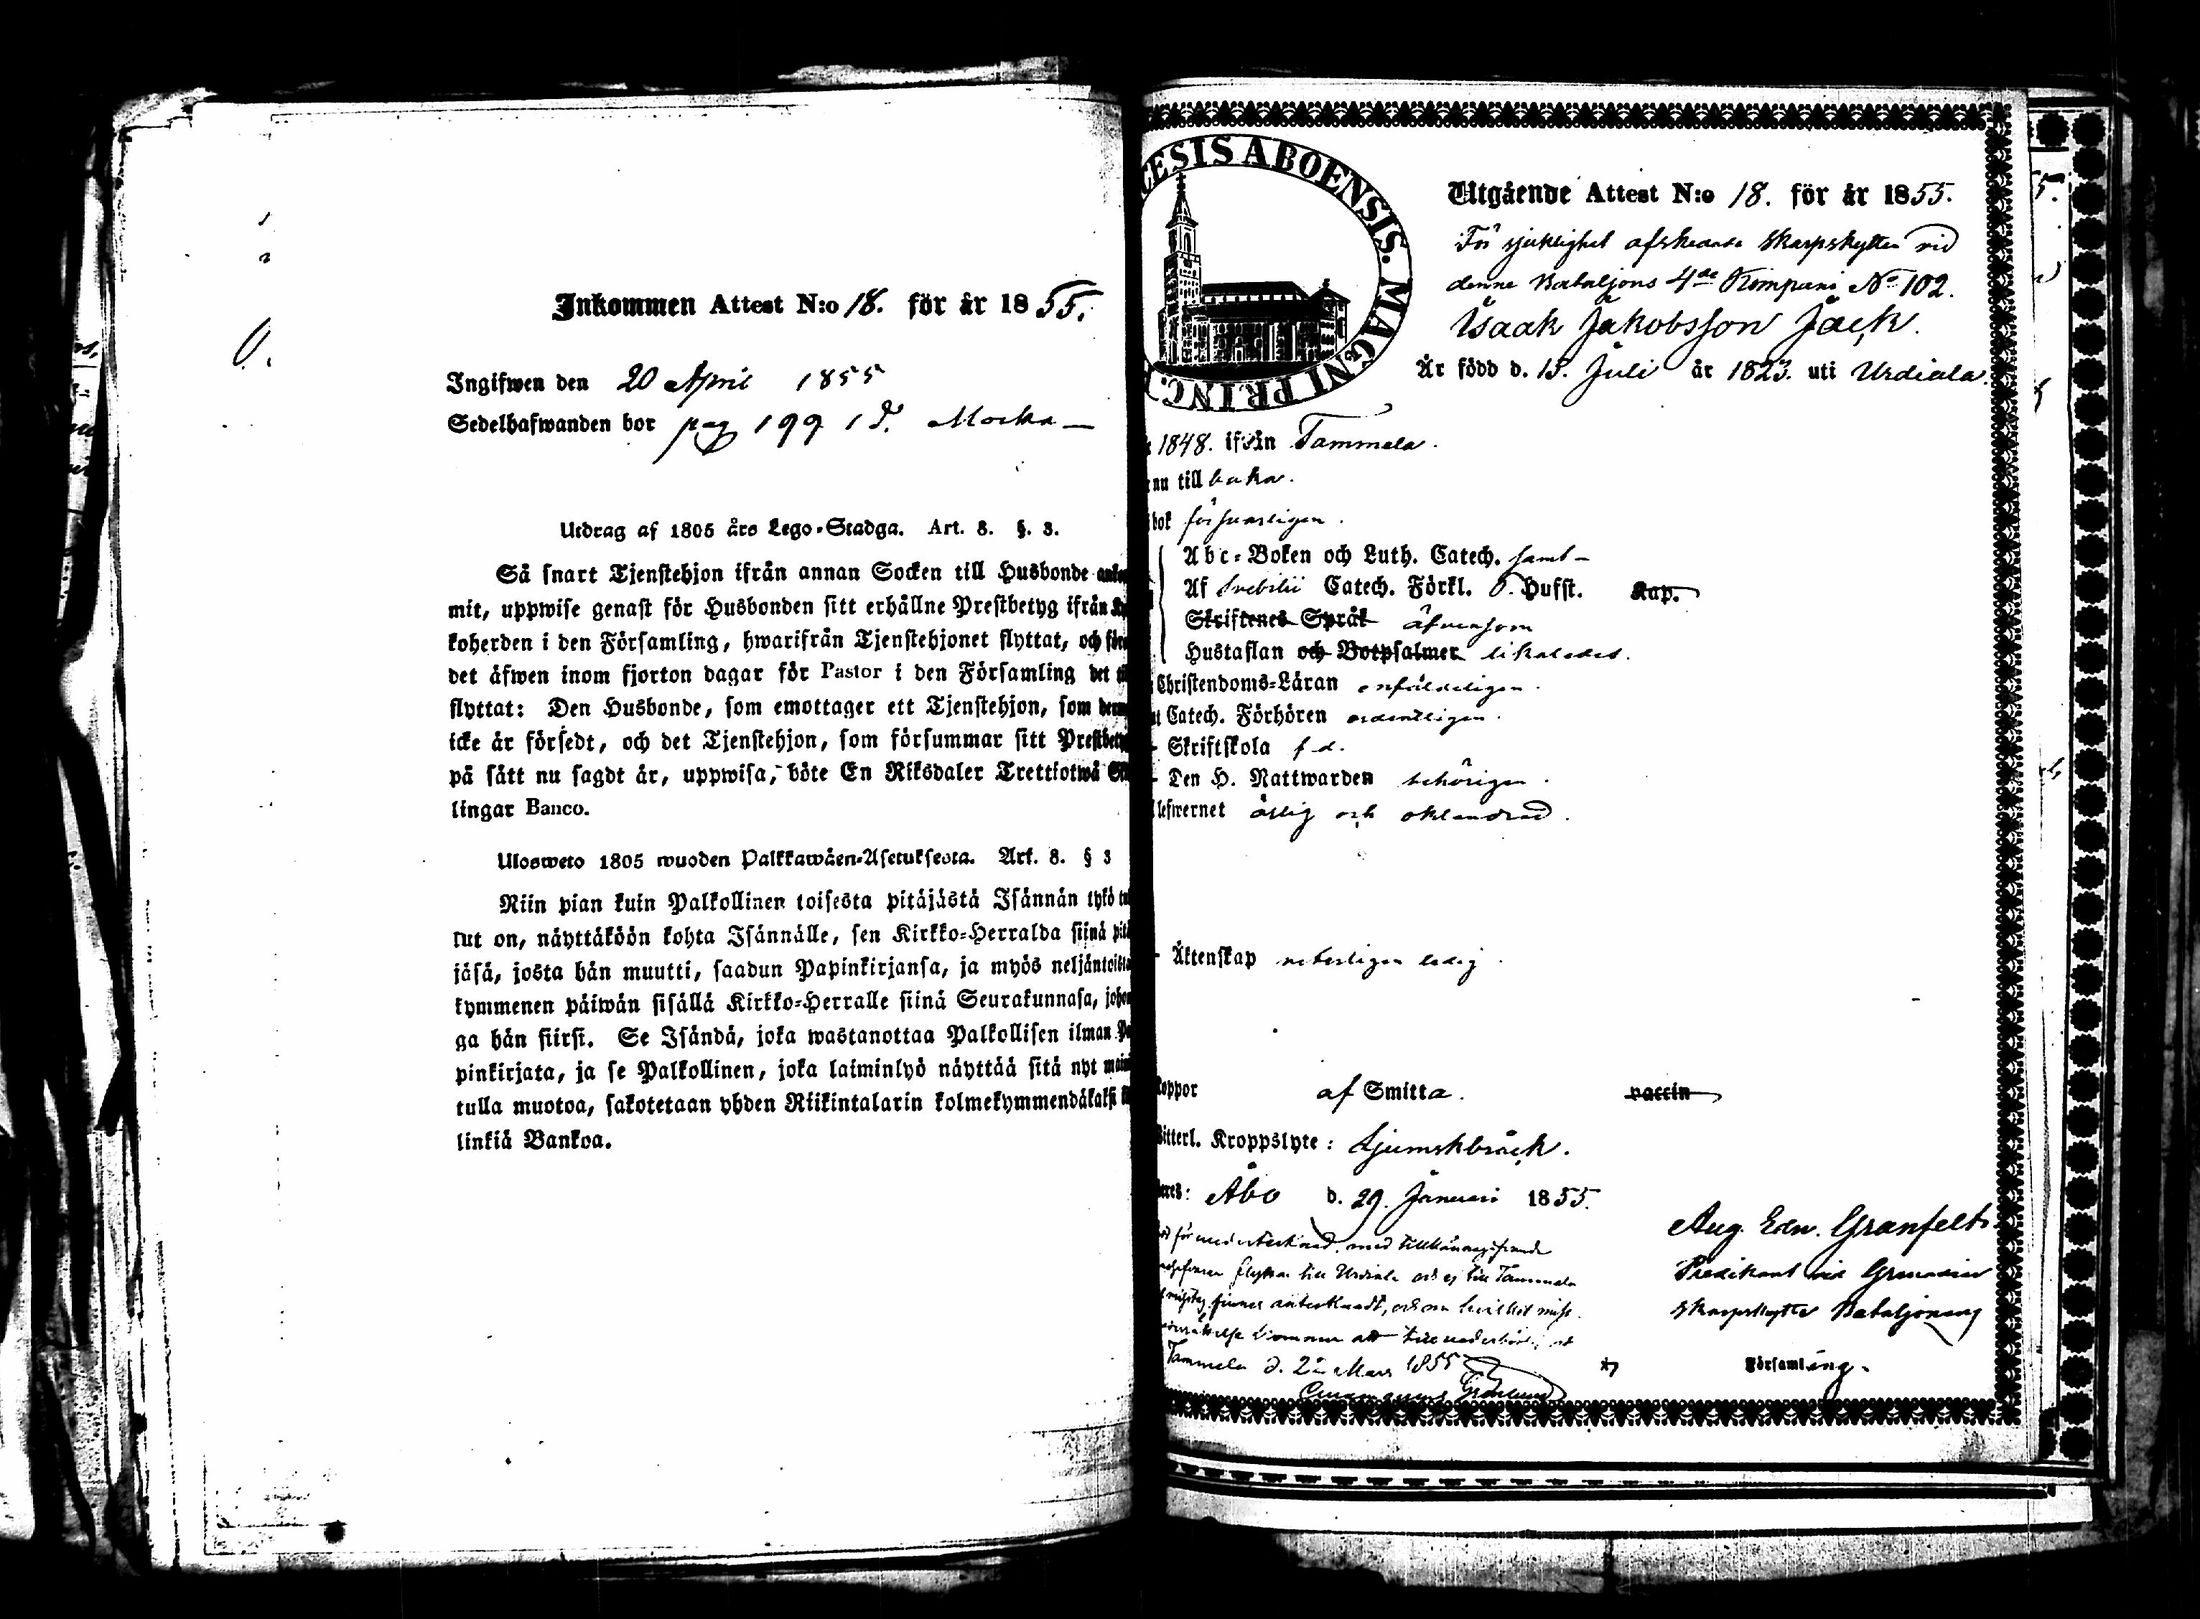 Inkommen Attest N:o 18. för år 1855.
Ingifwen den 20 April 1855
Sedelhafwanden bor pag 199
Utdrag af 1805 års Lego-Stadga. Art. 8. §. 3.
Så snart Tjenstehjon ifrån annan Socken till Husbonde
mit, uppwise genast för Husbonden sitt erhållne Prestbetyg ifrån
koherden i den Församling, hwarifrån Tjenstehjonet flyttat, och
det äfwen inom fjorton dagar för Pastor i den Församling det
flyttat: Den Husbonde, som emottager ett Tjenstehjon, som
icke är försedt, och det Tjenstehjon, som försummar sitt
på sätt nu sagdt är, uppwisa, böte En Riksdaler Trettiotwå
lingar Banco.
Ulosweto 1805 wuoden Palkkawäen-Asetuksesta. Art. 8. § 3
Niin pian kuin Palkollinen toisesta pitäjästä Isännän tykö
tut on, näyttäköön kohta Isännälle, sen Kirkko-Herralda siinä
jäsä, josta hän muutti, saadun Papinkirjansa, ja myös
kymmenen päiwän sisällä Kirkko-Herralle siinä Seurakunnasa,
ga hän siirsi. Se Isändä, joka wastanottaa Palkollisen ilman
pinkirjata, ja se Palkollinen, joka laiminlyö näyttää sitä nyt
tulla muotoa, sakotetaan yhden Riikintalarin kolmekymmendäkaksi
linkiä Bankoa.
CESIS ABOENSIS. MAGNI PRINC.
Utgående Attest N:o 18. för år 1855.
För sjuklighet afskedade skarpskytten vid
denne Bataljons 4de Kompani No 102.
Isaak Jakobsson Jäck.
Är född d. 15. Juli år 1823. uti Urdiala.
1848. ifrån Tammela.
nu tillbaka.
bok försvarligen.
Abc-Boken och Luth. Catech. samt
Af Svebilii Catech. Förkl. Hufst. Kap.
Skriftenes Språk äfvensom
Hustaflan och Botpsalmer likaledes.
Christendoms-Läran enfäldeligen.
Catech. Förhören ordentligen.
Skriftskola
Den H. Nattwarden behörigen.
lefwernet ärlig och oklandrad.
Äktenskap veterligen ledig.
Koppor af Smitta. vaccin
Witterl. Kroppslyte: Ljumskbråck.
Åbo d. 29. Januari 1855.
Aug. Edv. Granfelt
Predikant vid Grenadier
skarpskytte Bataljonens
Församling.
flyttar till Urdiala och ej till Tammela
Tammela d. 22 Mars 1855